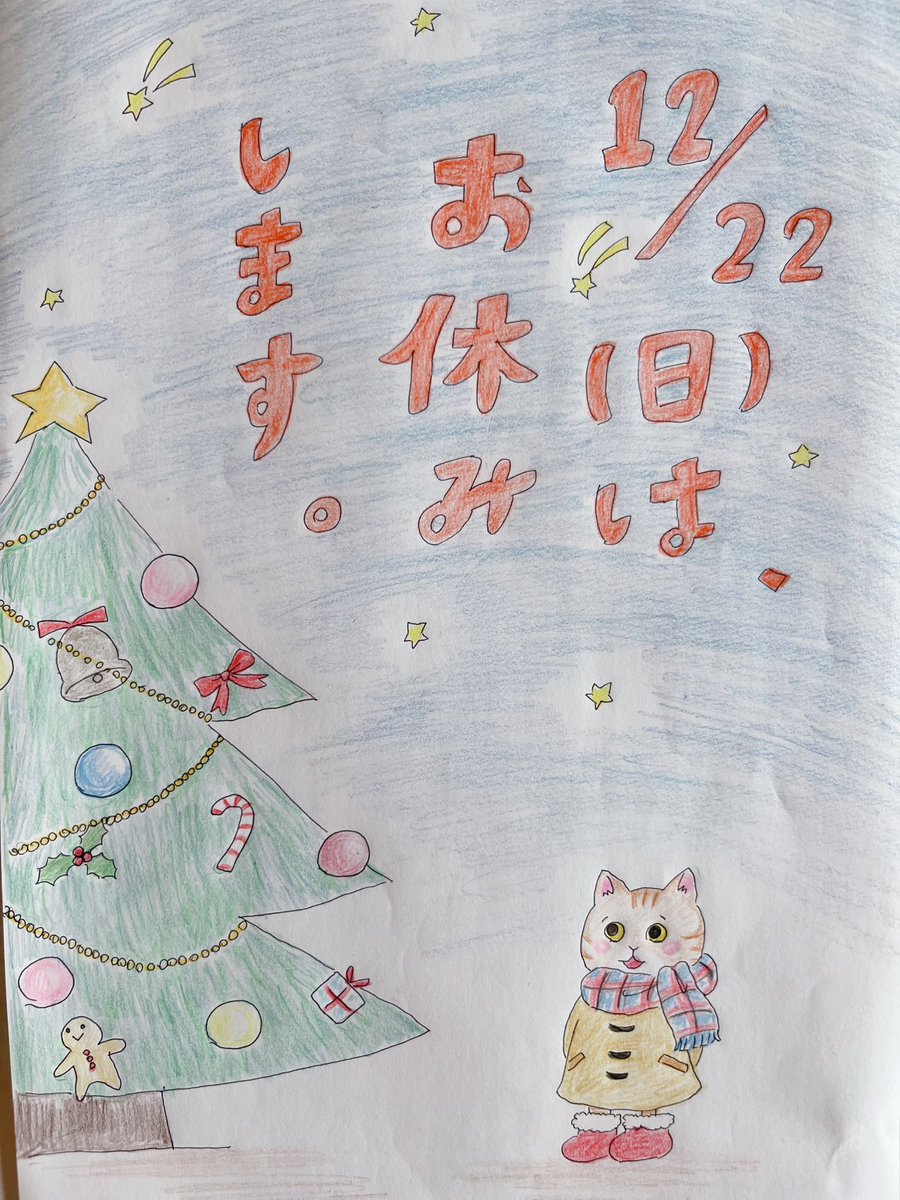 12/22(日)は、
お休み
します。